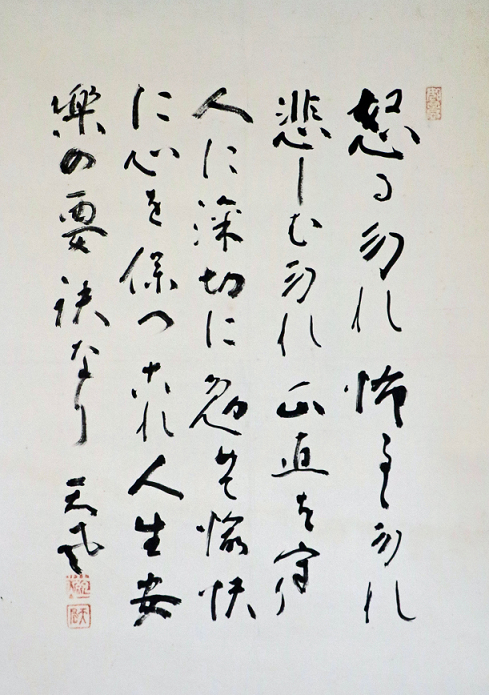 怒る勿れ 怖るゝ勿れ
悲しむ勿れ 正直を守り
人に深切に 勉めて愉快
に心を保つ これ人生安
樂の要訣なり 天風